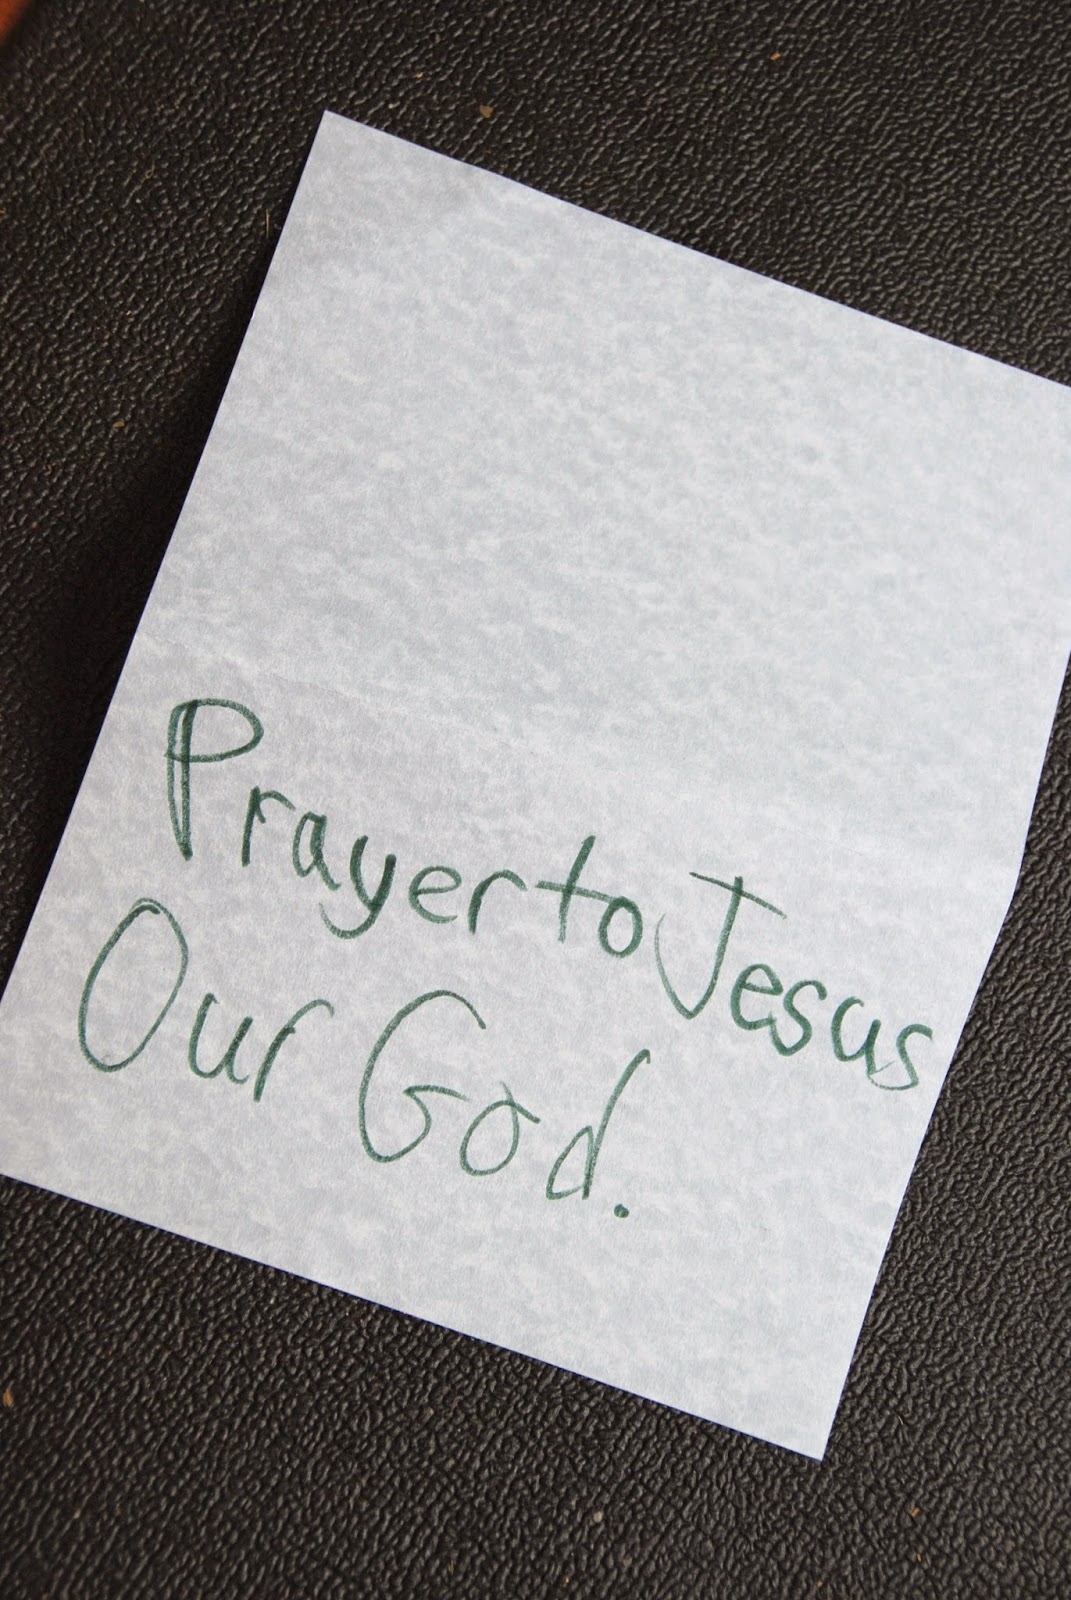 Prayer to Jesus
Our God.